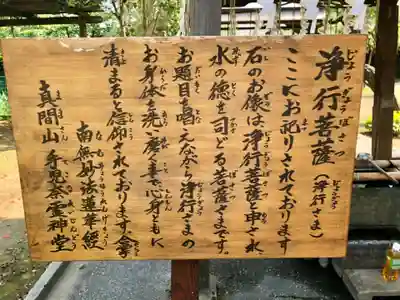 浄行菩薩(浄行さま)
ここにお祀りされております
石のお像は浄行菩薩と申され、
水の徳を司どる菩薩さまです。
お題目を唱えながら浄行さまの
お身体を洗い磨く事で心身ともに
清まると信仰されております。合掌
南無妙法蓮華経
真間山 手児奈霊神堂